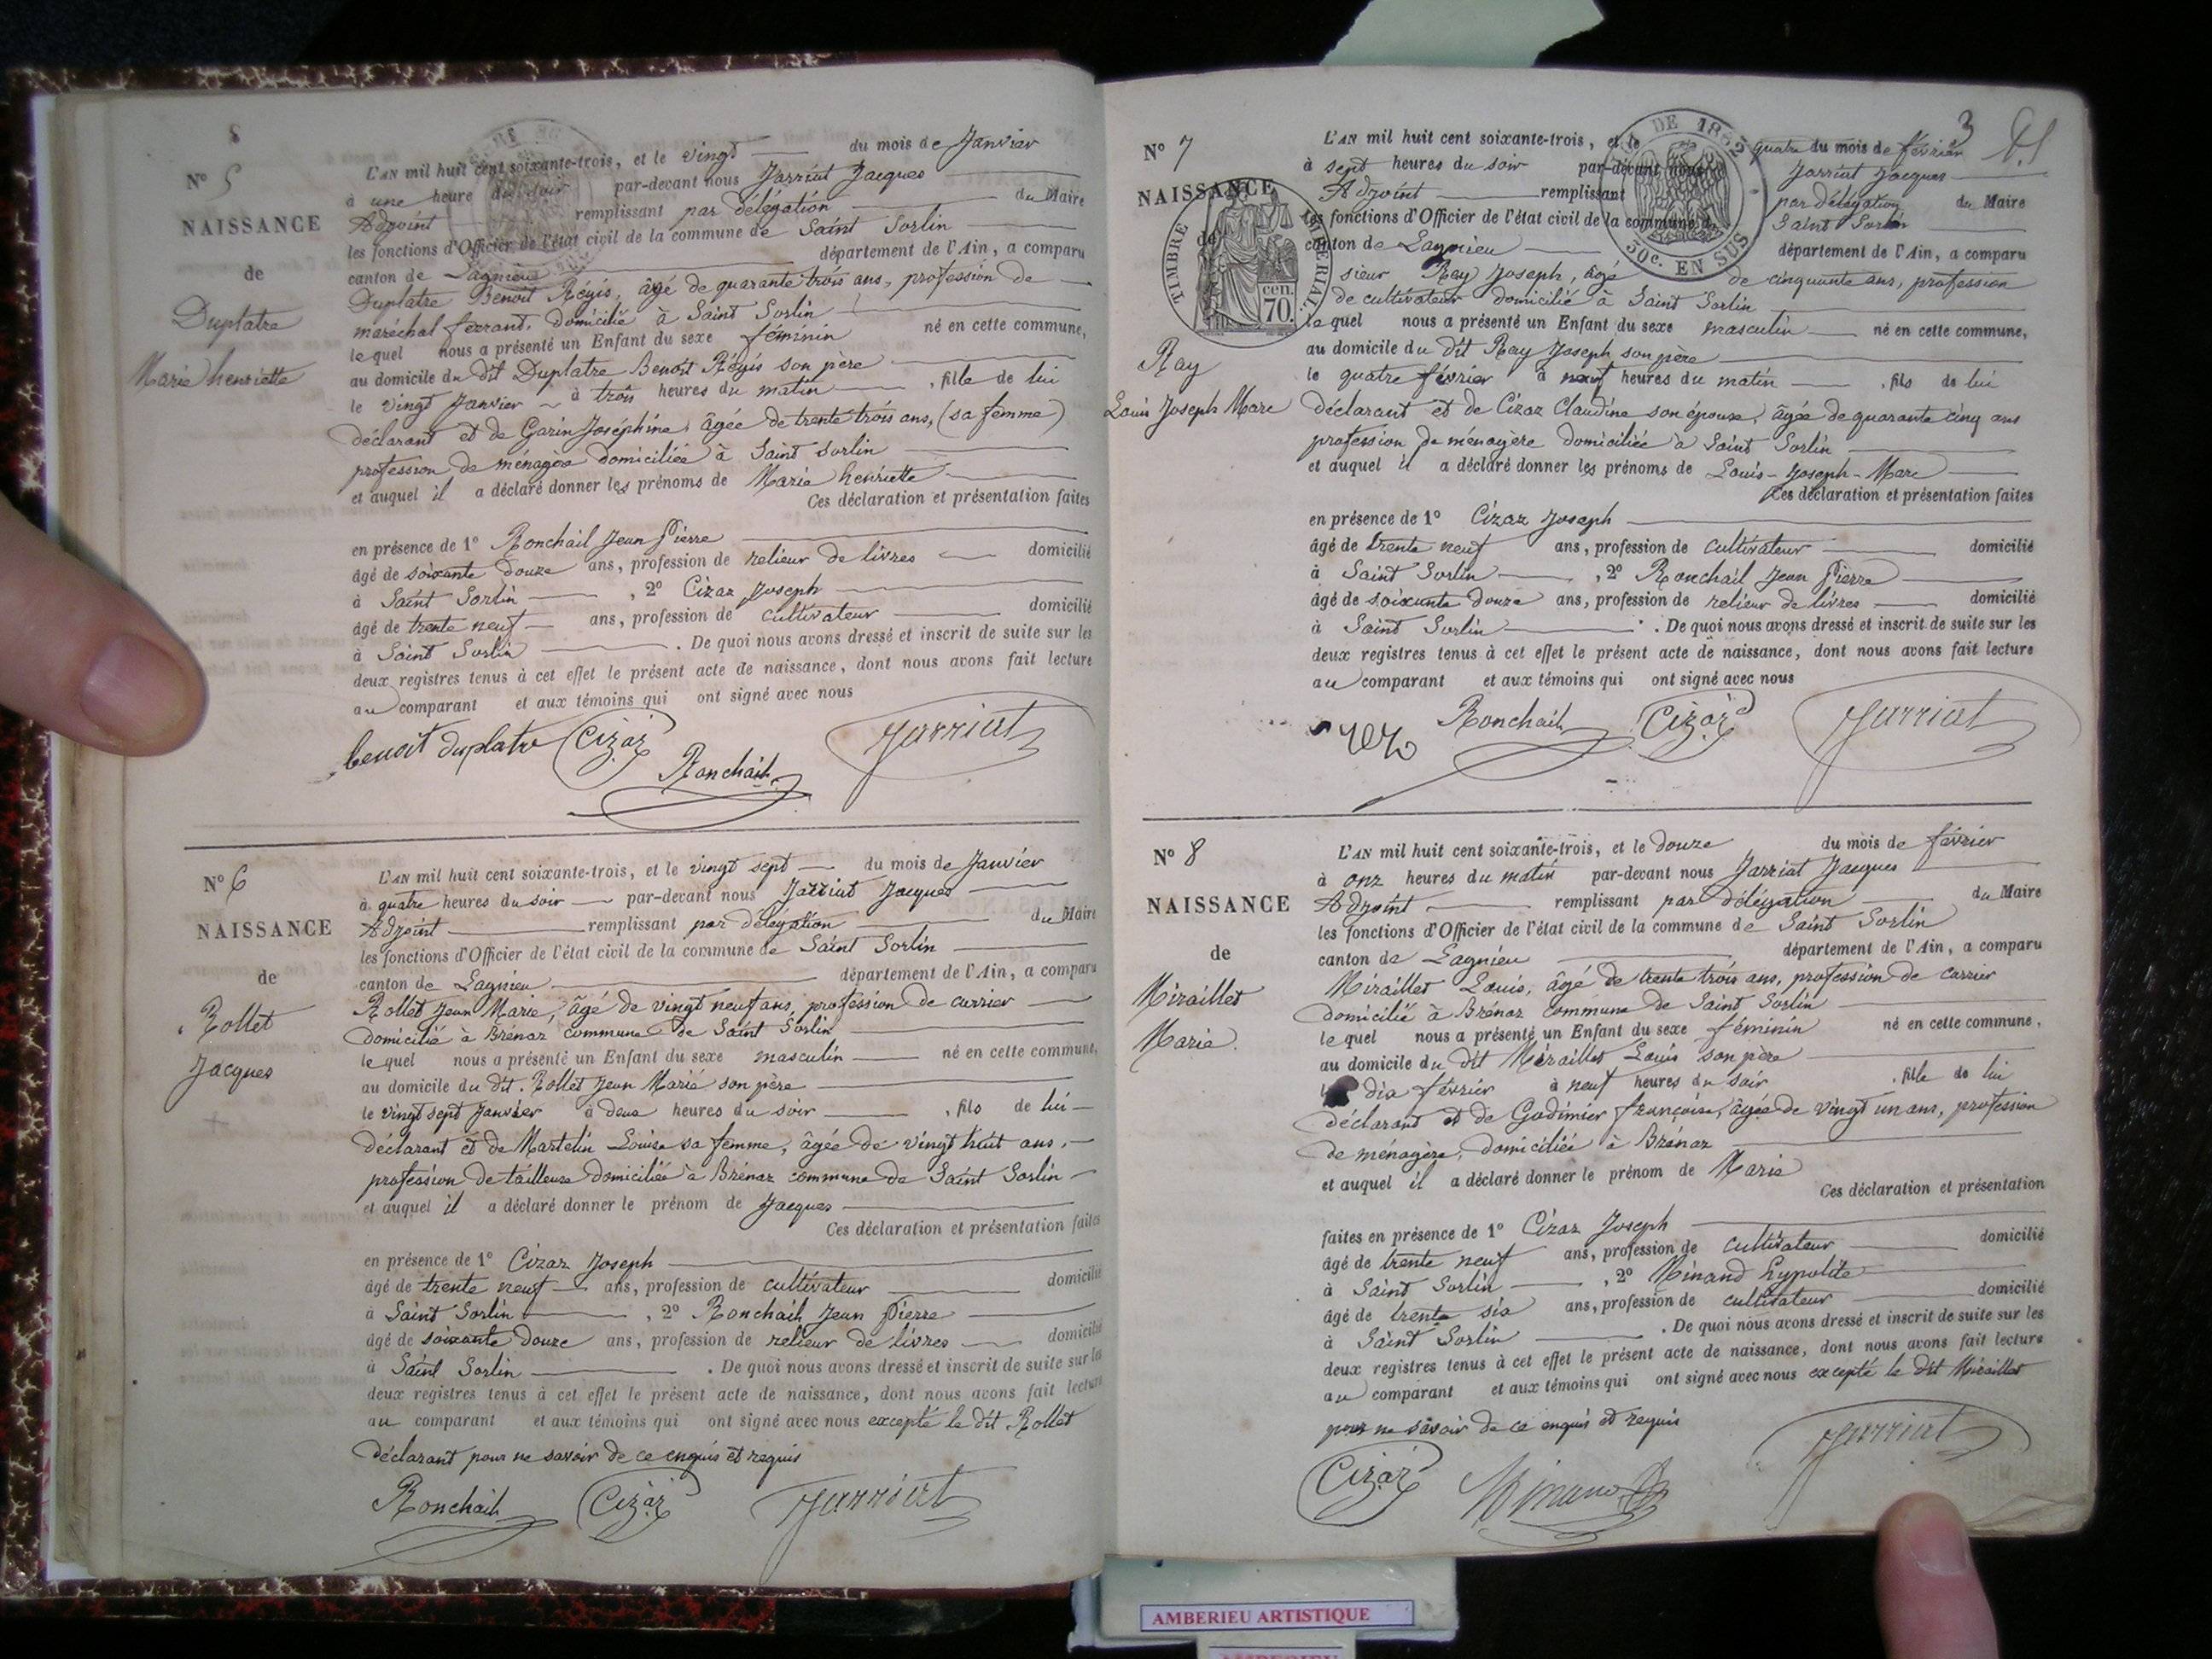 N° 5
NAISSANCE
de
Duplatre
Marie henriette
L'AN mil huit cent soixante-trois, et le vingt du mois de Janvier
à une heure du soir par-devant nous Jarriat Jacques
Adjoint remplissant par délégation du Maire
les fonctions d'Officier de l'état civil de la commune de Saint Sorlin
canton de Lagnieu département de l'Ain, a comparu
Duplatre Benoit Régis, âgé de quarante trois ans, profession de
maréchal ferrant, domicilié à Saint Sorlin
lequel nous a présenté un Enfant du sexe féminin né en cette commune,
au domicile du dit Duplatre Benoit Régis son père
le vingt Janvier à trois heures du matin , fille de lui
déclarant et de Garin Joséphine, âgée de trente trois ans, (sa femme)
profession de ménagère domiciliée à Saint Sorlin
et auquel il a déclaré donner les prénoms de Marie henriette
Ces déclaration et présentation faites
en présence de 1° Ronchail Jean Pierre
âgé de soixante douze ans, profession de relieur de livres domicilié
à Saint Sorlin , 2° Cizaz Joseph
âgé de trente neuf ans, profession de cultivateur domicilié
à Saint Sorlin . De quoi nous avons dressé et inscrit de suite sur les
deux registres tenus à cet effet le présent acte de naissance, dont nous avons fait lecture
au comparant et aux témoins qui ont signé avec nous
benoit duplatre Cizaz Ronchail Jarriat
N° 6
NAISSANCE
de
Rollet
Jacques
L'AN mil huit cent soixante-trois, et le vingt sept du mois de Janvier
à quatre heures du soir par-devant nous Jarriat Jacques
Adjoint remplissant par délégation du Maire
les fonctions d'Officier de l'état civil de la commune de Saint Sorlin
canton de Lagnieu département de l'Ain, a comparu
Rollet Jean Marie, âgé de vingt neuf ans, profession de carrier
domicilié à Brénaz commune de Saint Sorlin
lequel nous a présenté un Enfant du sexe masculin né en cette commune,
au domicile du dit Rollet Jean Marie son père
le vingt sept Janvier à deux heures du soir , fils de lui
déclarant et de Martelin Louise sa femme, âgée de vingt huit ans,
profession de tailleuse domiciliée à Brénaz commune de Saint Sorlin
et auquel il a déclaré donner le prénom de Jacques
Ces déclaration et présentation faites
en présence de 1° Cizaz Joseph
âgé de trente neuf ans, profession de cultivateur domicilié
à Saint Sorlin , 2° Ronchail Jean Pierre
âgé de soixante douze ans, profession de relieur de livres domicilié
à Saint Sorlin . De quoi nous avons dressé et inscrit de suite sur les
deux registres tenus à cet effet le présent acte de naissance, dont nous avons fait lecture
au comparant et aux témoins qui ont signé avec nous excepté le dit Rollet
déclarant pour ne savoir de ce enquis et requis
Ronchail Cizaz Jarriat
3
N° 7
NAISSANCE
de
Ray
Louis Joseph Marc
TIMBRE IMPERIAL
cen.
70.
DE 1862
50c. EN SUS
L'AN mil huit cent soixante-trois, et le quatre du mois de février
à sept heures du soir par-devant nous Jarriat Jacques
Adjoint remplissant par délégation du Maire
les fonctions d'Officier de l'état civil de la commune de Saint Sorlin
canton de Lagnieu département de l'Ain, a comparu
sieur Ray Joseph, âgé de cinquante ans, profession
de cultivateur domicilié à Saint Sorlin
lequel nous a présenté un Enfant du sexe masculin né en cette commune,
au domicile du dit Ray Joseph son père
le quatre février à neuf heures du matin , fils de lui
déclarant et de Cizaz Claudine son épouse, âgée de quarante cinq ans
profession de ménagère domiciliée à Saint Sorlin
et auquel il a déclaré donner les prénoms de Louis-Joseph-Marc
Ces déclaration et présentation faites
en présence de 1° Cizaz Joseph
âgé de trente neuf ans, profession de cultivateur domicilié
à Saint Sorlin , 2° Ronchail Jean Pierre
âgé de soixante douze ans, profession de relieur de livres domicilié
à Saint Sorlin . De quoi nous avons dressé et inscrit de suite sur les
deux registres tenus à cet effet le présent acte de naissance, dont nous avons fait lecture
au comparant et aux témoins qui ont signé avec nous
Ronchail Cizaz Jarriat
N° 8
NAISSANCE
de
Miraillet
Marie
L'AN mil huit cent soixante-trois, et le douze du mois de février
à onz heures du matin par-devant nous Jarriat Jacques
Adjoint remplissant par délégation du Maire
les fonctions d'Officier de l'état civil de la commune de Saint Sorlin
canton de Lagnieu département de l'Ain, a comparu
Miraillet Louis, âgé de trente trois ans, profession de carrier
domicilié à Brénaz commune de Saint Sorlin
lequel nous a présenté un Enfant du sexe féminin né en cette commune,
au domicile du dit Miraillet Louis son père
dix février à neuf heures du soir , fille de lui
déclarant et de Godimier françoise, âgée de vingt un ans, profession
de ménagère, domiciliée à Brénaz
et auquel il a déclaré donner le prénom de Marie
Ces déclaration et présentation
faites en présence de 1° Cizaz Joseph
âgé de trente neuf ans, profession de cultivateur domicilié
à Saint Sorlin , 2° Minand hypolite
âgé de trente six ans, profession de cultivateur domicilié
à Saint Sorlin . De quoi nous avons dressé et inscrit de suite sur les
deux registres tenus à cet effet le présent acte de naissance, dont nous avons fait lecture
au comparant et aux témoins qui ont signé avec nous excepté le dit Miraillet
pour ne savoir de ce enquis et requis
Cizaz Minand Jarriat
AMBERIEU ARTISTIQUE